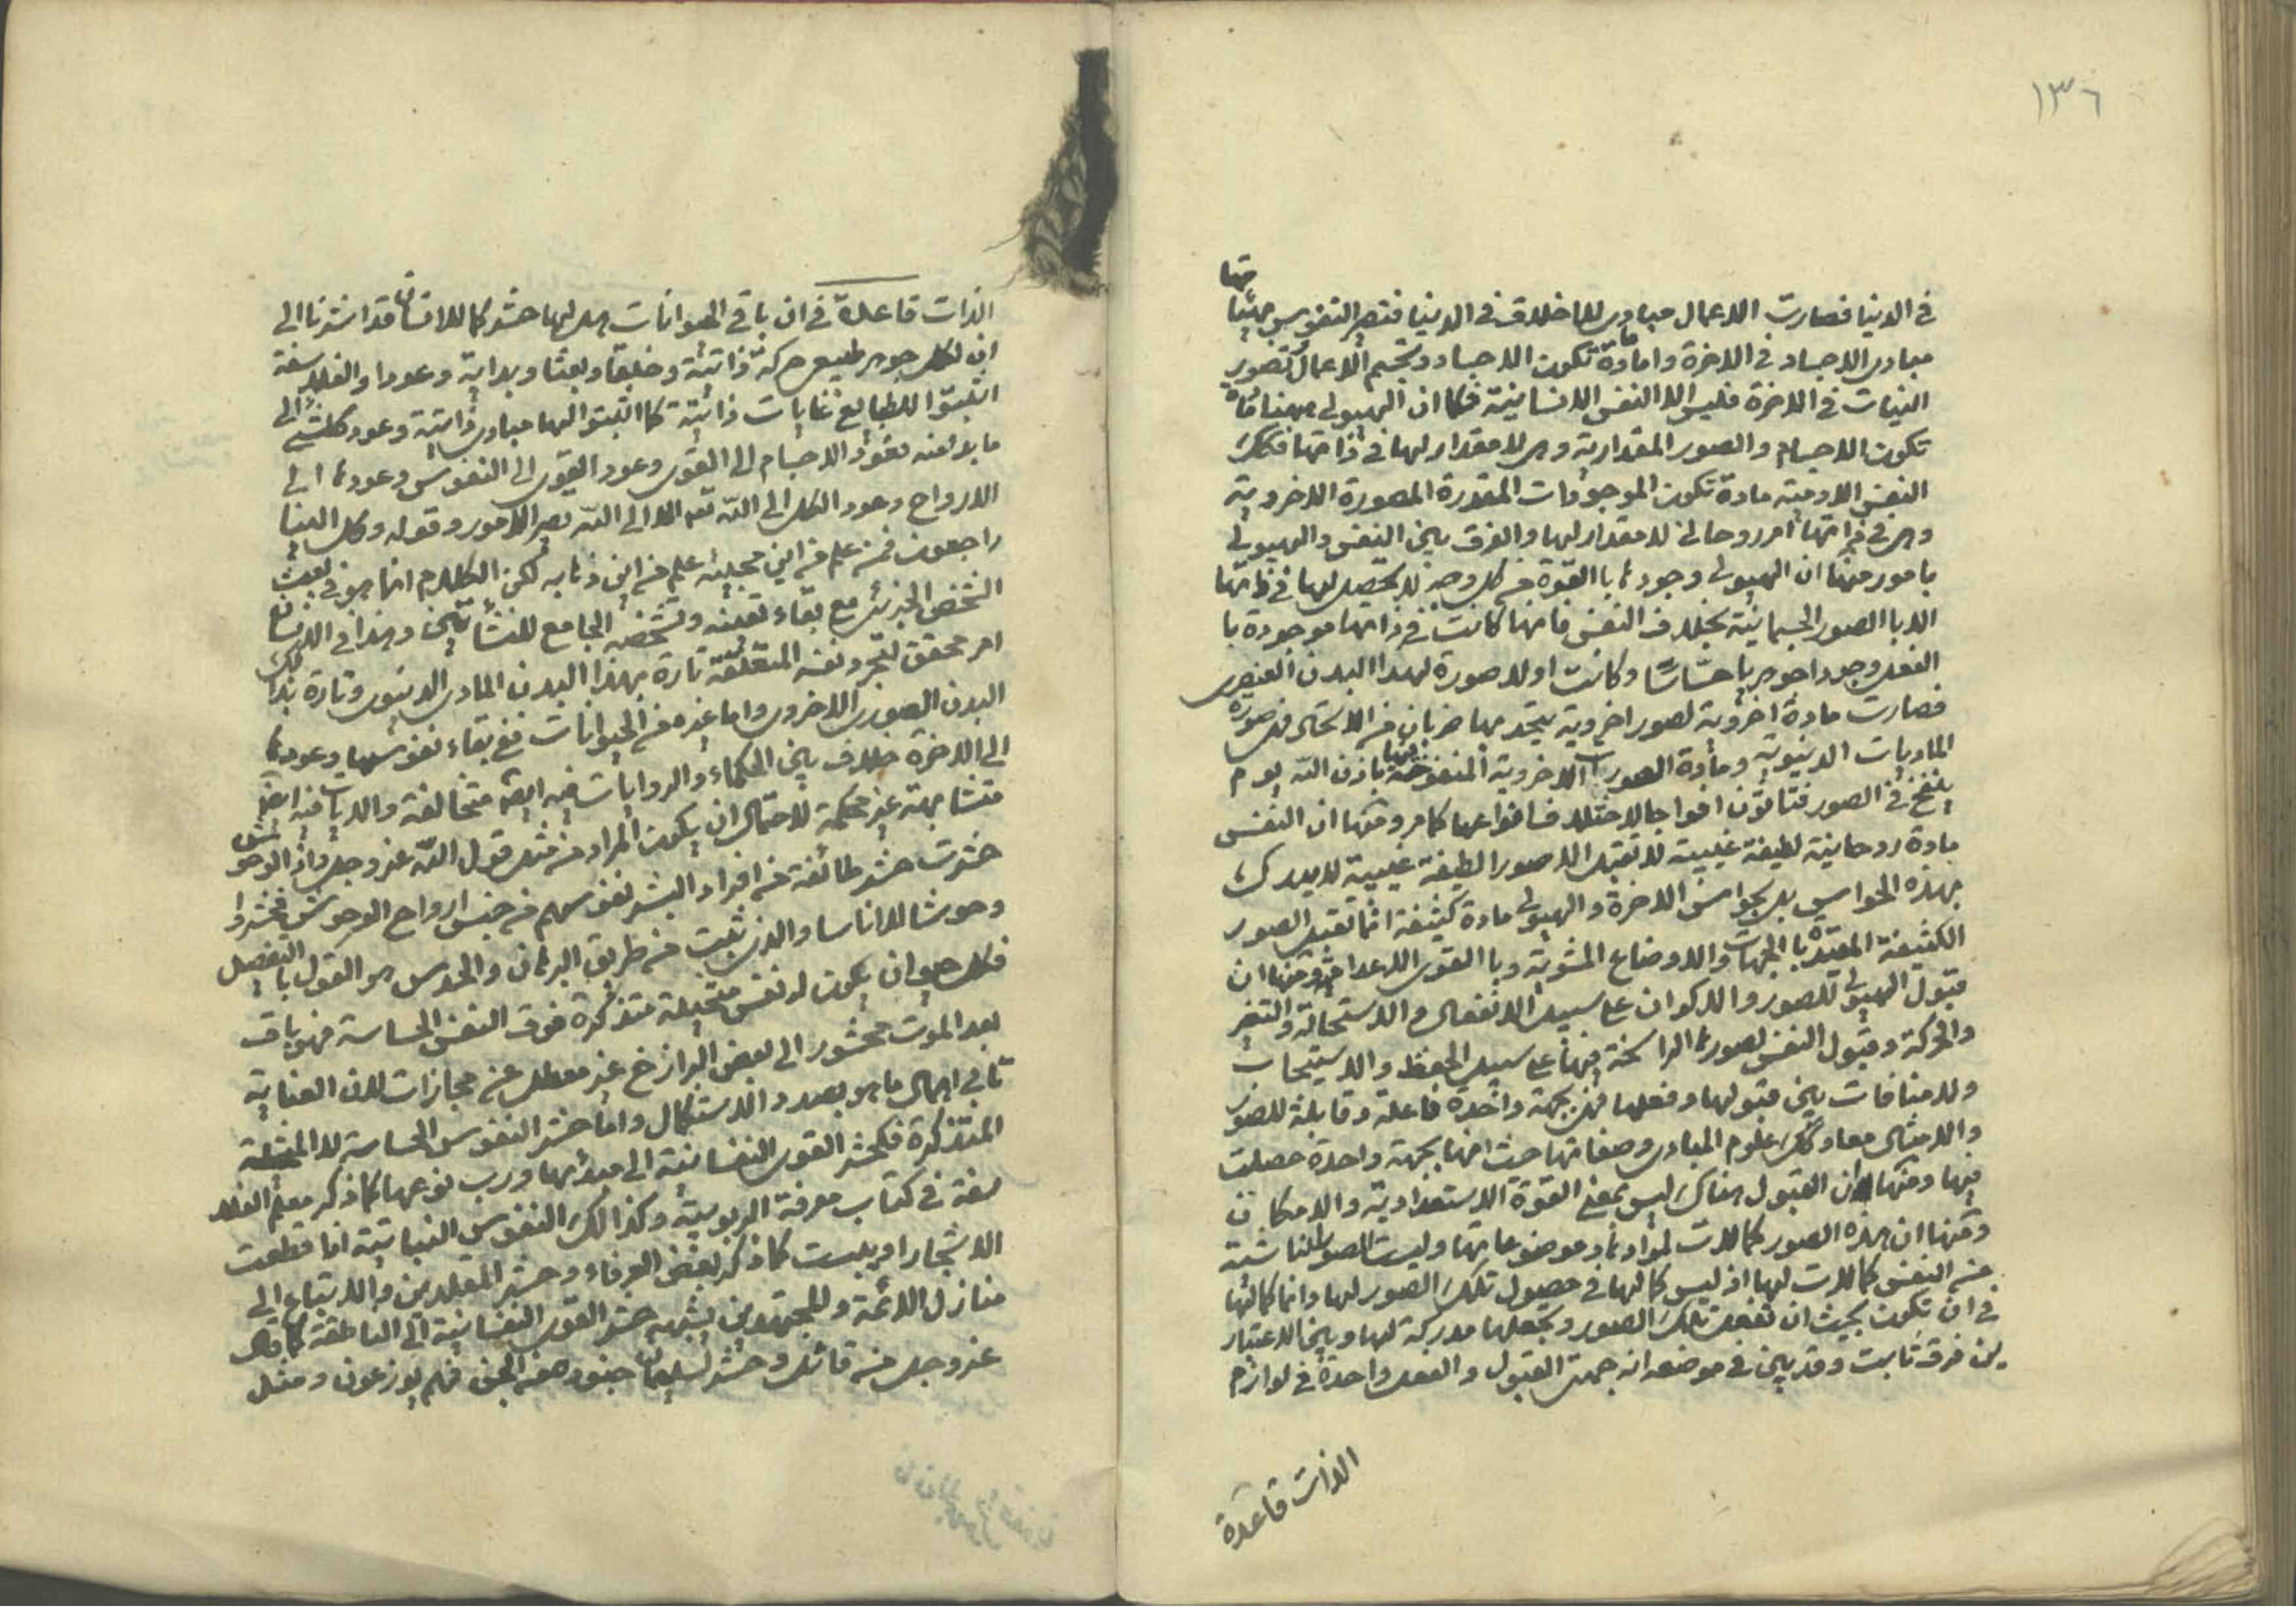 ١٣٦
في الدنيا فصارت الاعمال مبادى للاخلاق في الدنيا فتصير النفوس بهيئاتها
مبادى الاجساد في الاخرة واما مادة تكون الاجساد وتجسم الاعمال وتصوير
النيات في الاخرة فليس الا النفس الانسانية فكما ان الهيولى ههنا مادة
تكون الاجسام والصور المقدارية وهى لا مقدار لها في ذاتها فكك
النفس الادمية مادة تكون الموجودات المقدرة المصورة الاخروية
وهى في ذاتها امر روحانى لا مقدار لها والفرق بين النفس والهيولى
بامور منها ان الهيولى وجودها بالقوة من كل وجه لا تحصل لها في ذاتها
الا با الصور الجسمانية بخلاف النفس فانها كانت في ذاتها موجودة با
الفعل وجودا جوهريا حساسا وكانت اولا صورة لهذا البدن العنصرى
فصارت مادة اخروية لصور اخروية يتحد بها ضربا من الاتحاد فهى صورة
الماديات الدنيوية ومادة الصوريات الاخروية المنفوخة فيها باذن الله يوم
ينفخ في الصور فتأتون افواجا لاختلاف انواعها كما مر ومنها ان النفس
مادة روحانية لطيفة غيبية لا تقبل الا صورا لطيفة غيبية لا يدرك
بهذه الحواس بل بحواس الاخرة والهيولى مادة كثيفة انما تقبل الصور
الكثيفة المقيدة با الجهات والاوضاع المشوبة وبا القوى الاعدام ومنها ان
قبول الهيولى للصور والاكوان على سبيل الانفعال والاستحالة والتغير
والحركة وقبول النفس لصورها الراسخة فيها على سبيل الحفظ والاستيجاب
ولا منافات بين قبولها وفعلها فهى بجهة واحدة فاعلة وقابلة للصور
والامثال معا وكك علوم المبادى وصفاتها حيث انها بجهة واحدة حصلت
فيها ومنها ان القبول هناك ليس بمعنى القوة الاستعدادية والامكان
ومنها ان هذه الصور كمالات لموادها وموضوعاتها وليست الصور الناشئة
من النفس كمالات لها اذ ليس كمالها في حصول تلك الصور لها وانما كمالها
في ان تكون بحيث ان تفعل تلك الصور وتجعلها مدركة لها وبين الاعتبار
ين فرق ثابت وقد بين في موضعه ان جهتى القبول والفعل واحدة في لوازم
الذات قاعدة
الذات قاعدة في ان باقي الحيوانات هل لها حشر كما للانسان قد اشرنا الى
ان لكل جوهر طبيعى حركة ذاتية وخلقا وبعثا وبداية وعودا والفلاسفة
اثبتوا للطبايع غايات ذاتية كما اثبتوا لها مبادى ذاتية وعود كل شئ الى
ما بدا منه فعود الاجسام الى القوى وعود القوى الى النفوس وعودها الى
الارواح وعود الكل الى الله تعه الا الى الله تصير الامور وقوله وكل الينا
راجعون فمن علم من اين مجيئه علم من اين ذهابه لكن الكلام انما هو في بعث
الشخص الجزئى مع بقاء تعينه وتشخصه الجامع للنشأتين وهذا في الانسان
امر محقق لتجرد نفسه المتعلقة تارة بهذا البدن المادى الدنيوى وتارة بذلك
البدن الصورى الاخروى واما غيره من الحيوانات ففى بقاء نفوسها وعودها
الى الاخرة خلاف بين الحكماء والروايات فيه ايضا متخالفة والايات فيه ايضا
متشابهة غير محكمة لاحتمال ان يكون المراد من مثل قول الله عز وجل واذا الوحوش
حشرت حشر طائفة من افراد البشر نفوسهم من جنس ارواح الوحوش فحشروا
وحوشا لا اناسا والذى ثبت من طريق البرهان والحدس هو القول با التفصيل
فكل حيوان يكون له نفس متخيلة متذكرة فوق النفس الحساسة فهى باقية
بعد الموت محشور الى بعض البرازخ غير معطل عن مجازات لان العناية
تابى اهمال ما هو بصدد الاستكمال واما حشر النفوس الحساسة لا المتخيلة
المتذكرة فكحشر القوى النفسانية الى مبدأها ورب نوعها كما ذكر معلم الفلا
سفة في كتاب معرفة الربوبية وكذالك النفوس النباتية اذا قطعت
الاشجار او يبست كما ذكر بعض العرفاء وحشر المقلدين والاتباع الى
منازل الائمة والمجتهدين يشبه حشر القوى النفسانية الى الناطقة كما قال
عز وجل من قائل وحشر لسليمان جنوده من الجن فهم يوزعون ومثل